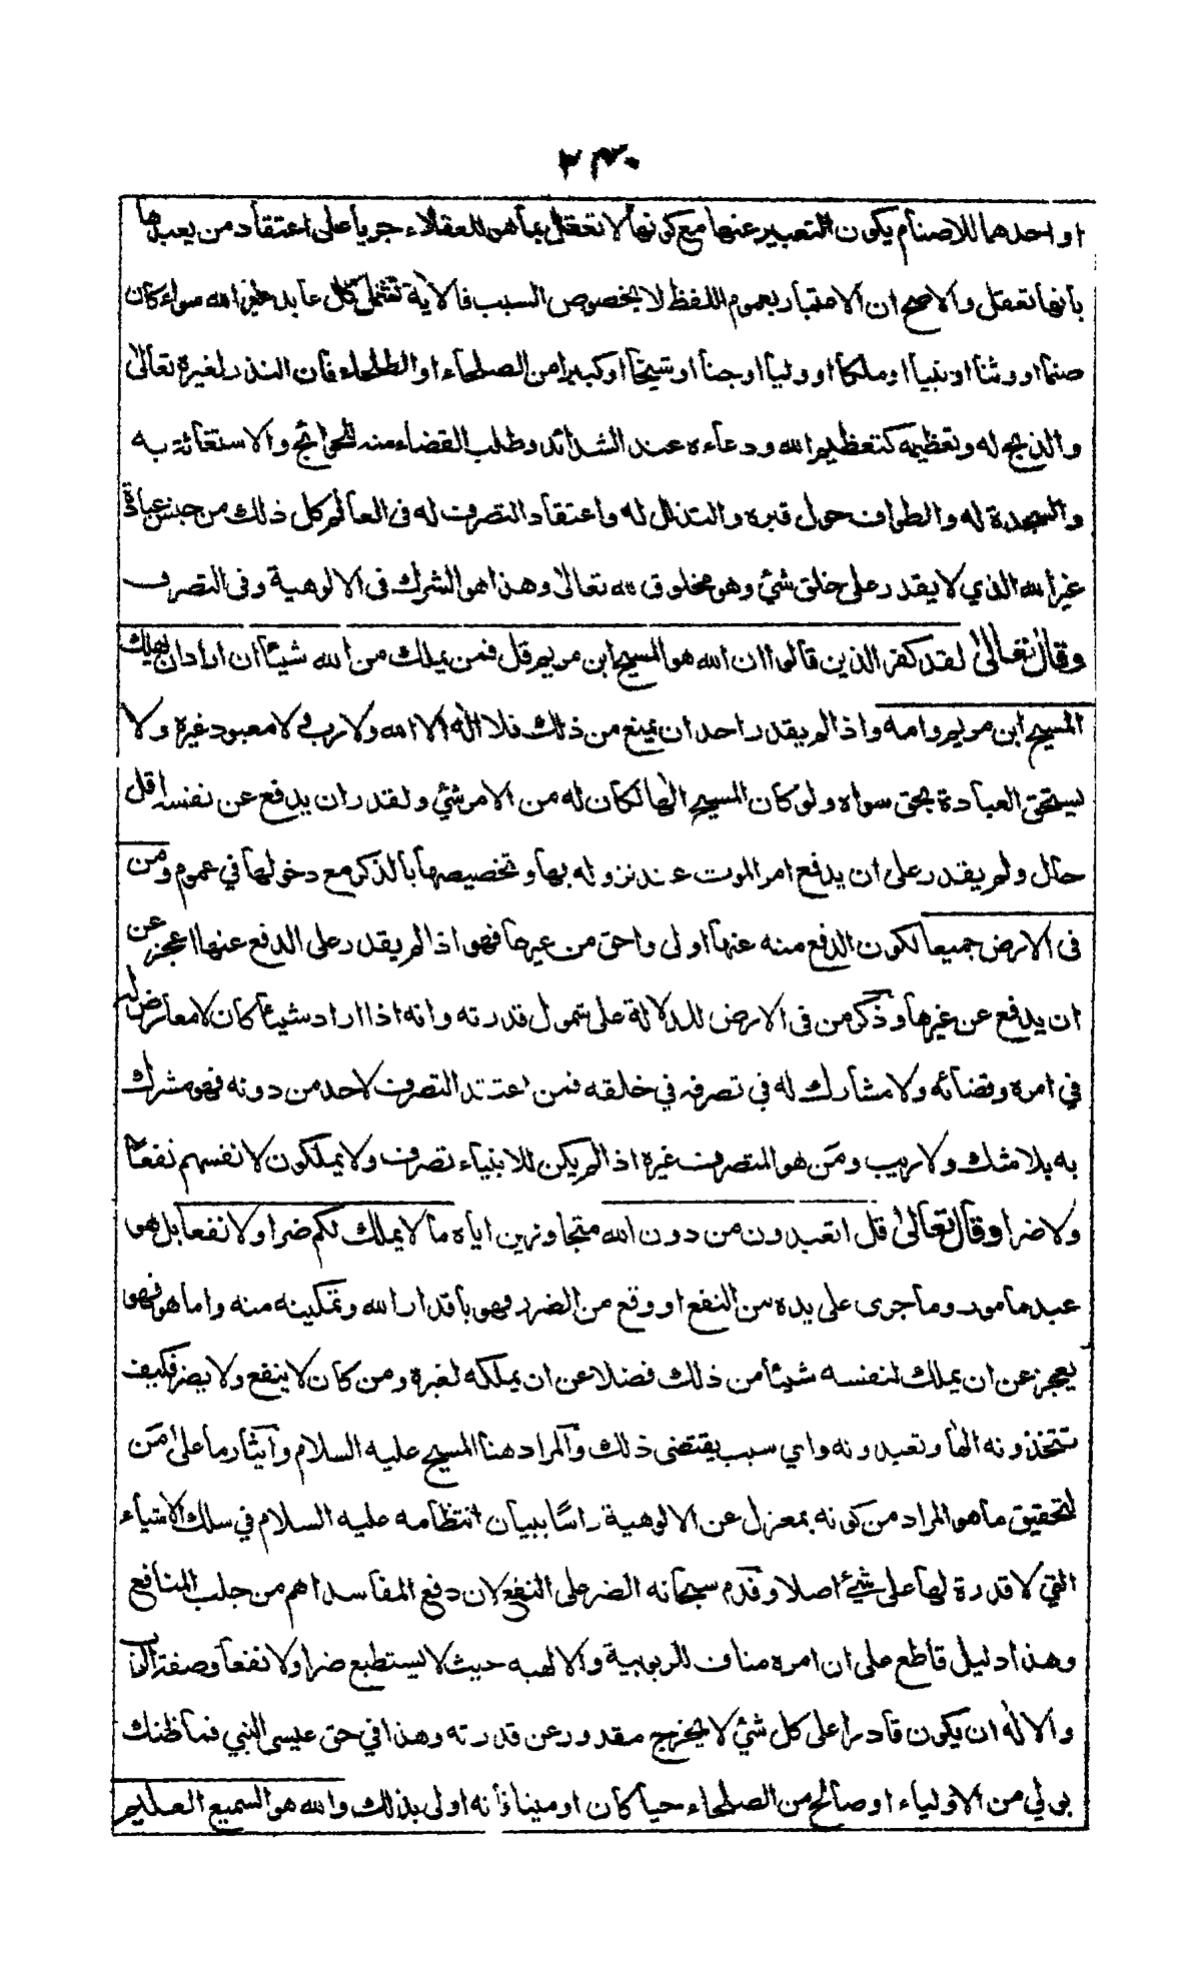 ٢٣٠
او احدهما للاصنام يكون التعبير عنها مع كونها لا تعقل بما هو للعقلاء جريا على اعتقاد من يعبدها
بانها تعقل والاصح ان الاعتبار بعموم اللفظ لا بخصوص السبب فالاية تشمل كل عابد غير الله سواء كان
صنما او وثنا او نبيا او ملكا او وليا او جنا او شيخا او كبيرا من الصلحاء او الطلحاء فان النذر لغيره تعالى
والذبح له وتعظيمه كتعظيم الله ودعاءه عند الشدائد وطلب القضاء منه للحوائج والاستغاثة به
والسجدة له والطواف حول قبره والتذلل له واعتقاد التصرف له فى العالم كل ذلك من جنس عبادة
غير الله الذي لا يقدر على خلق شئ وهو مخلوق لله تعالى وهذا هو الشرك فى الالوهية وفى التصرف
وقال تعالى لقد كفر الذين قالوا ان الله هو المسيح ابن مريم قل فمن يملك من الله شيئا ان اراد ان يهلك
المسيح ابن مريم وامه واذا لم يقدر احد ان يمنع من ذلك فلا اله الا الله ولا رب ولا معبود غيره ولا
يستحق العبادة بحق سواه ولو كان المسيح الها لكان له من الامر شئ ولقدر ان يدفع عن نفسه اقل
حال ولم يقدر على ان يدفع امر الموت عند نزوله بها وتخصيصها بالذكر مع دخولها في عموم ومن
فى الارض جميعا لكون الدفع منه عنها اولى واحق من غيرها فهو اذا لم يقدر على الدفع عنها اعجز عن
ان يدفع عن غيرها وذكر من فى الارض للدلالة على شمول قدرته وانه اذا اراد شيئا كان لا معارض له
في امره وقضائه ولا مشارك له في تصرفه في خلقه فمن اعتقد التصرف لاحد من دونه فهو مشرك
به بلا شك ولا ريب ومن هو المتصرف غيره اذ لم يكن للانبياء تصرف ولا يملكون لانفسهم نفعا
ولا ضرا وقال تعالى قل اتعبدون من دون الله متجاوزين اياه ما لا يملك لكم ضرا ولا نفعا بل هو
عبد مامور وما جرى على يده من النفع او وقع من الضر فهو باقدار الله وتمكينه منه واما هو فهو
يعجز عن ان يملك لنفسه شيئا من ذلك فضلا عن ان يملكه لغيره ومن كان لا ينفع ولا يضر فكيف
تتخذونه الها وتعبدونه واي سبب يقتضى ذلك والمراد هنا المسيح عليه السلام وايثار ما على من
لتحقيق ما هو المراد من كونه بمعزل عن الالوهية راسا ببيان انتظامه عليه السلام في سلك الاشياء
التي لا قدرة لها على شئ اصلا وقدم سبحانه الضر على النفع لان دفع المفاسد اهم من جلب المنافع
وهذا دليل قاطع على ان امره مناف للربوبية والالهية حيث لا يستطيع ضرا ولا نفعا وصفة الرب
والاله ان يكون قادرا على كل شئ لا يخرج مقدور عن قدرته وهذا في حق عيسى النبي فما ظنك
بولي من الاولياء او صالح من الصلحاء حيا كان او ميتا فانه اولى بذلك والله هو السميع العليم